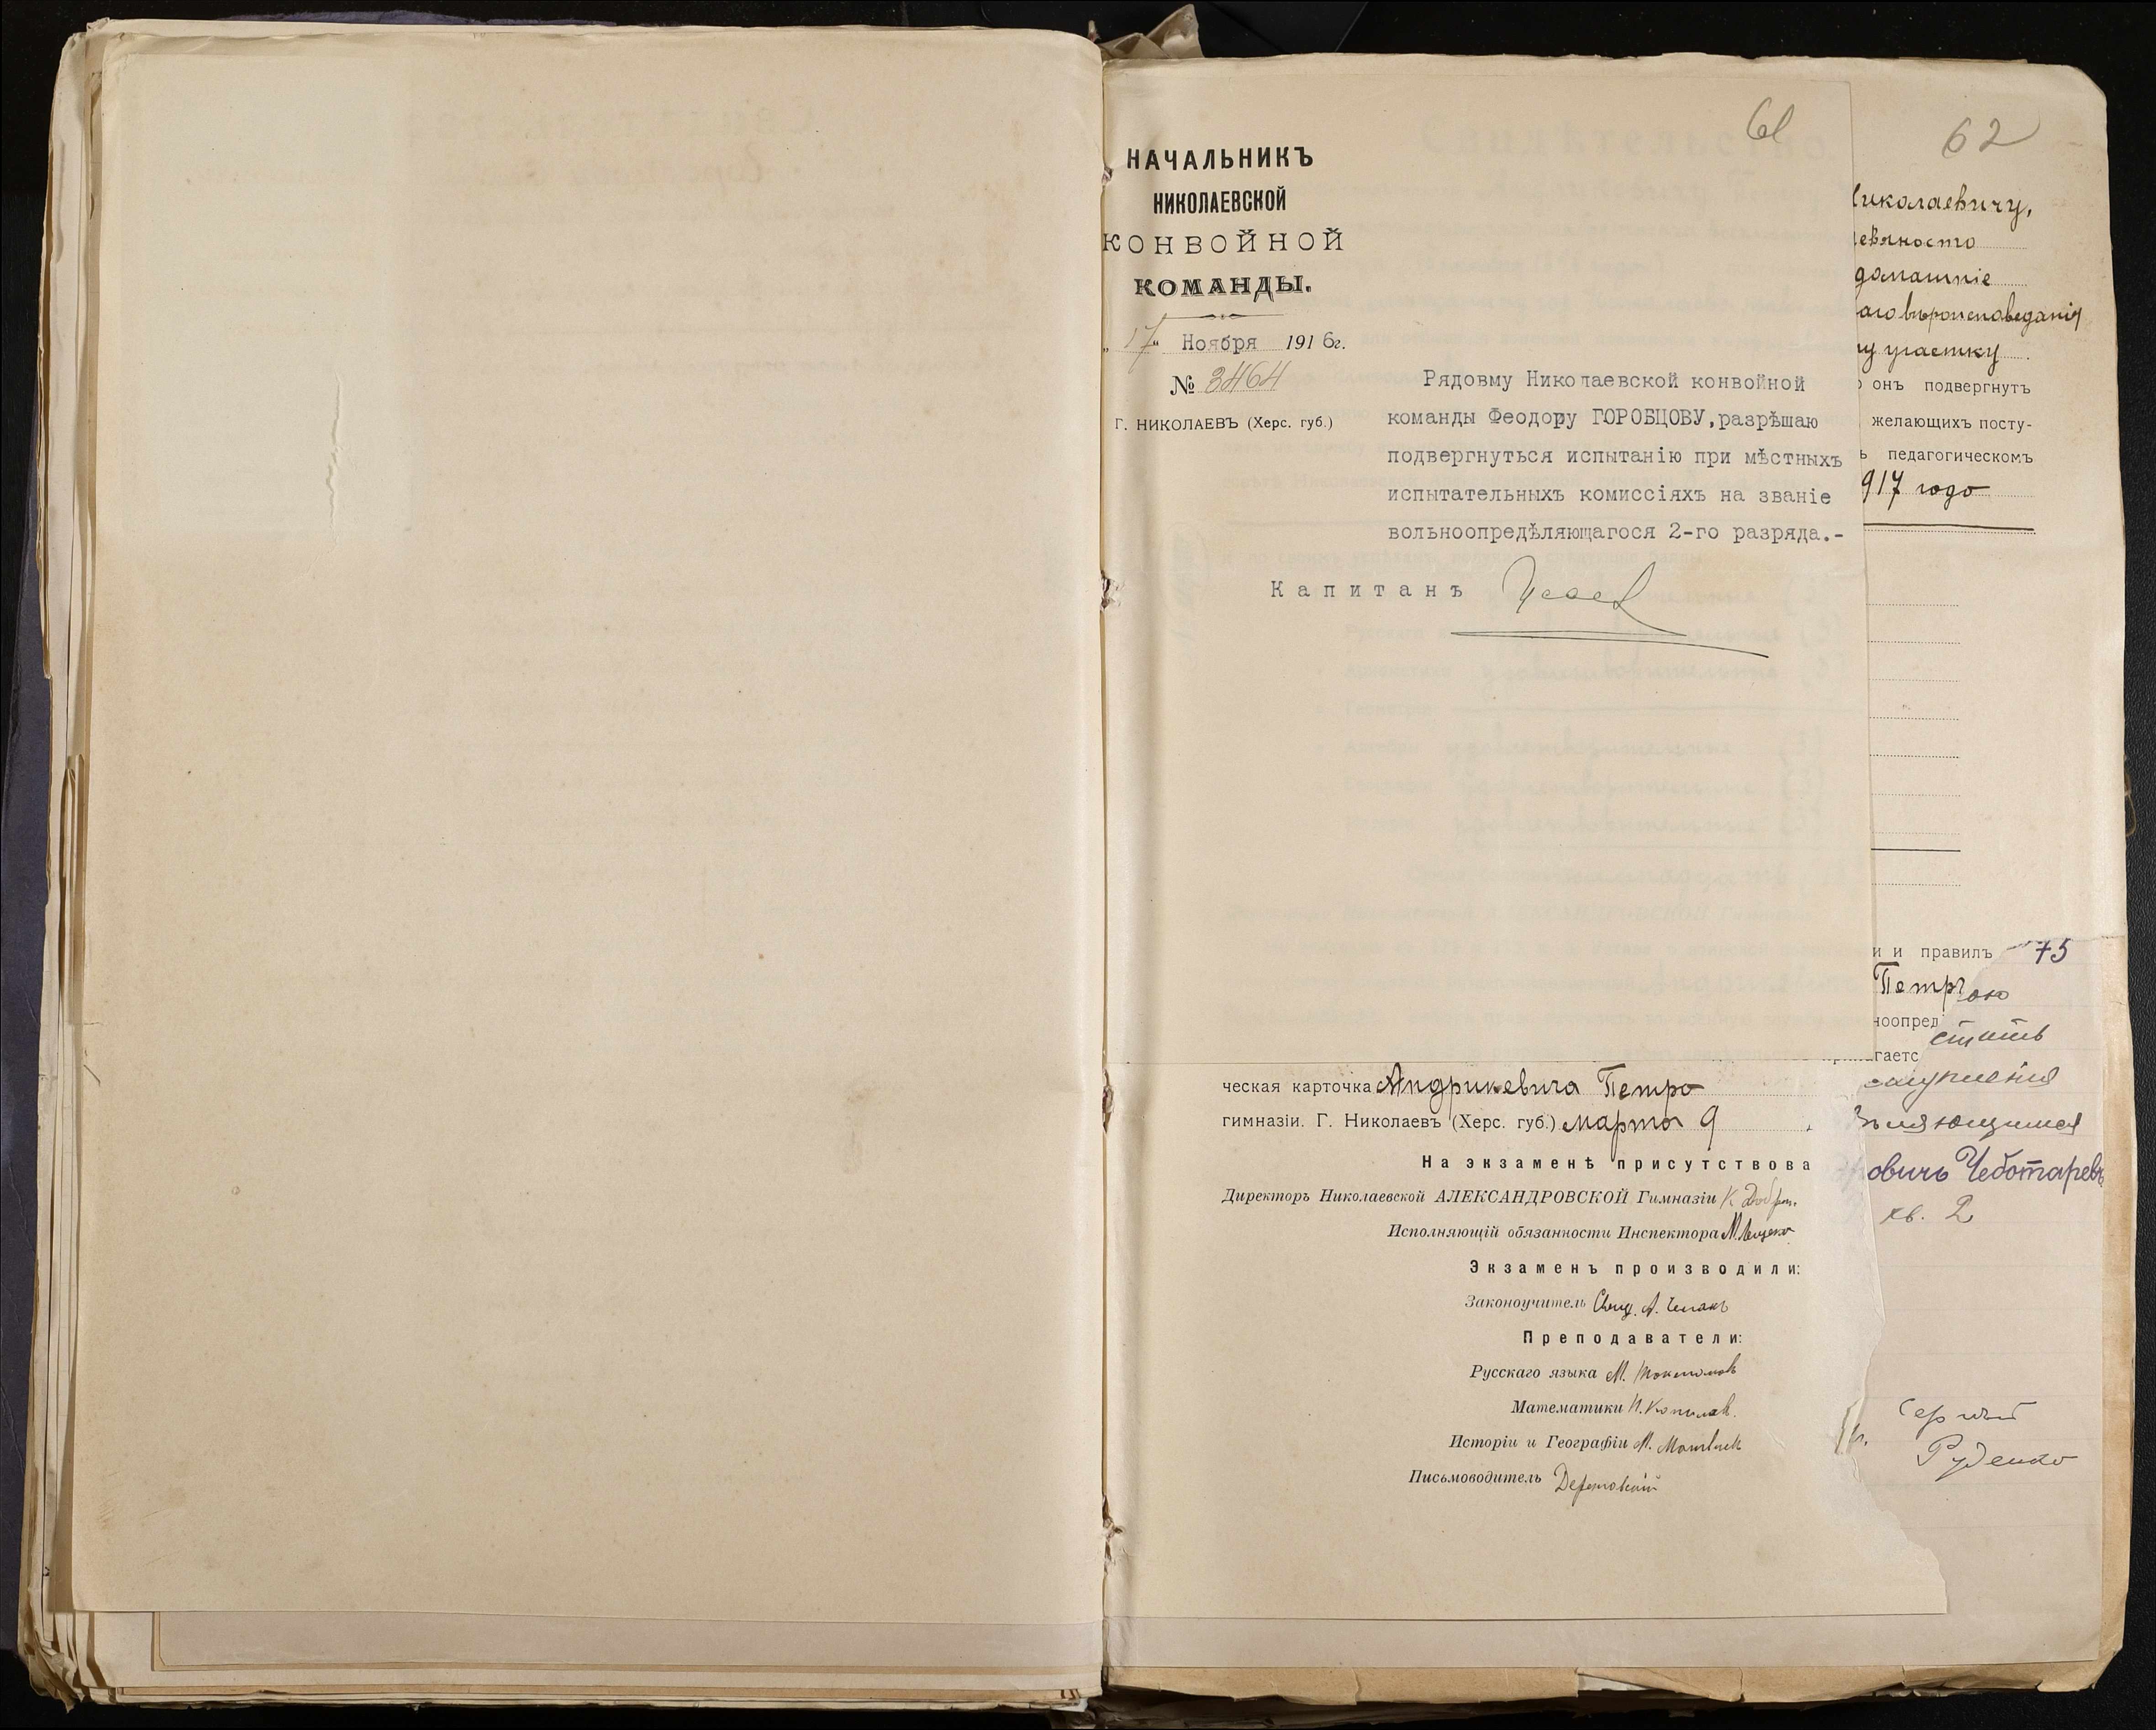 61
НАЧАЛЬНИКЪ
НИКОЛАЕВСКОЙ
КОНВОЙНОЙ
КОМАНДЫ.
„17“ Ноября 1916г.
№ 3464
Г. НИКОЛАЕВЪ (Херс. губ.)
Рядовму Николаевской конвойной
команды Феодору ГОРОБЦОВУ,разрѣшаю
подвергнуться испытанію при мѣстныхъ
испытательныхъ комиссіяхъ на званіе
вольноопредѣляющагося 2-го разряда.-
Капитанъ
62
иколаевичу,
девяносто
домашніе
аго вѣроисповеданія
му участку
о онъ подвергнутъ
желающихъ посту-
ь педагогическомъ
917 года
и и правилъ
Петр
ноопред
гаетс
ческая карточка Андрикевича Петра
гимназіи. Г. Николаевъ (Херс. губ.) марта 9
На экзаменѣ присутствова
Директоръ Николаевской АЛЕКСАНДРОВСКОЙ Гимназіи К.
Исполняющій обязанности Инспектора
Экзаменъ производили:
Законоучитель Свящ. А.
Преподаватели:
Русскаго языка М.
Математики
Исторіи и Географіи
Письмоводитель
75
ою
стить
ляющимся
овичъ Чеботаревъ
кв. 2
Сергѣй
Руденко